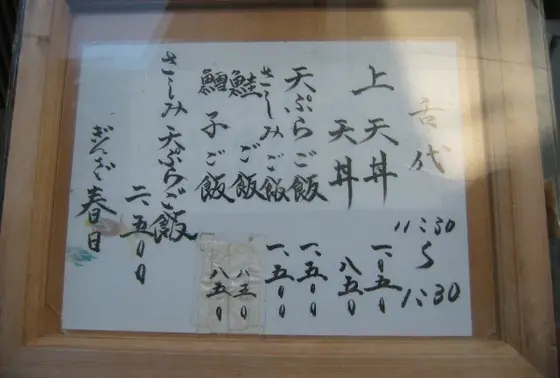 舌代
11:30〜1:30
上天丼 一、〇五〇
天丼 八五〇
天ぷらご飯 一、五〇〇
さしみご飯 一、五〇〇
鮭ご飯 八五〇
鱈子ご飯 八五〇
さしみ天ぷらご飯 二、五〇〇
ぎんざ春日